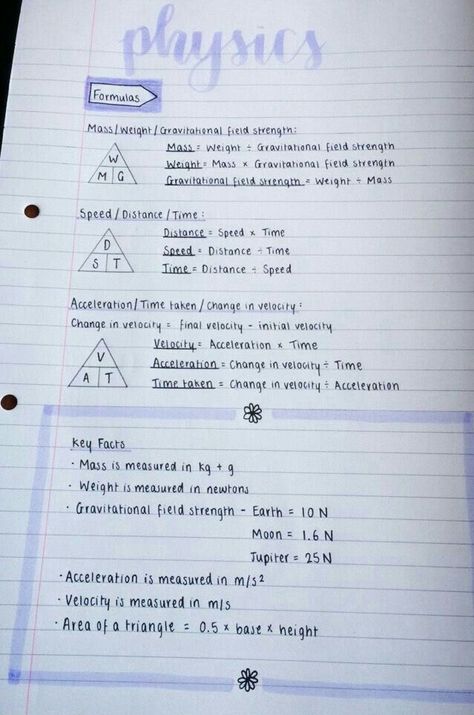 physics
Formulas
Mass/Weight/Gravitational field strength:
W
M G
Mass = Weight ÷ Gravitational field strength
Weight = Mass × Gravitational field strength
Gravitational field strength = Weight ÷ Mass
Speed/Distance/Time:
D
S T
Distance = Speed × Time
Speed = Distance ÷ Time
Time = Distance ÷ Speed
Acceleration/Time taken/Change in velocity:
Change in velocity = final velocity - initial velocity
V
A T
Velocity = Acceleration × Time
Acceleration = Change in velocity ÷ Time
Time taken = Change in velocity ÷ Acceleration
Key Facts
· Mass is measured in kg + g
· Weight is measured in newtons
· Gravitational field strength - Earth = 10 N
Moon = 1.6 N
Jupiter = 25 N
· Acceleration is measured in m/s²
· Velocity is measured in m/s
· Area of a triangle = 0.5 × base × height